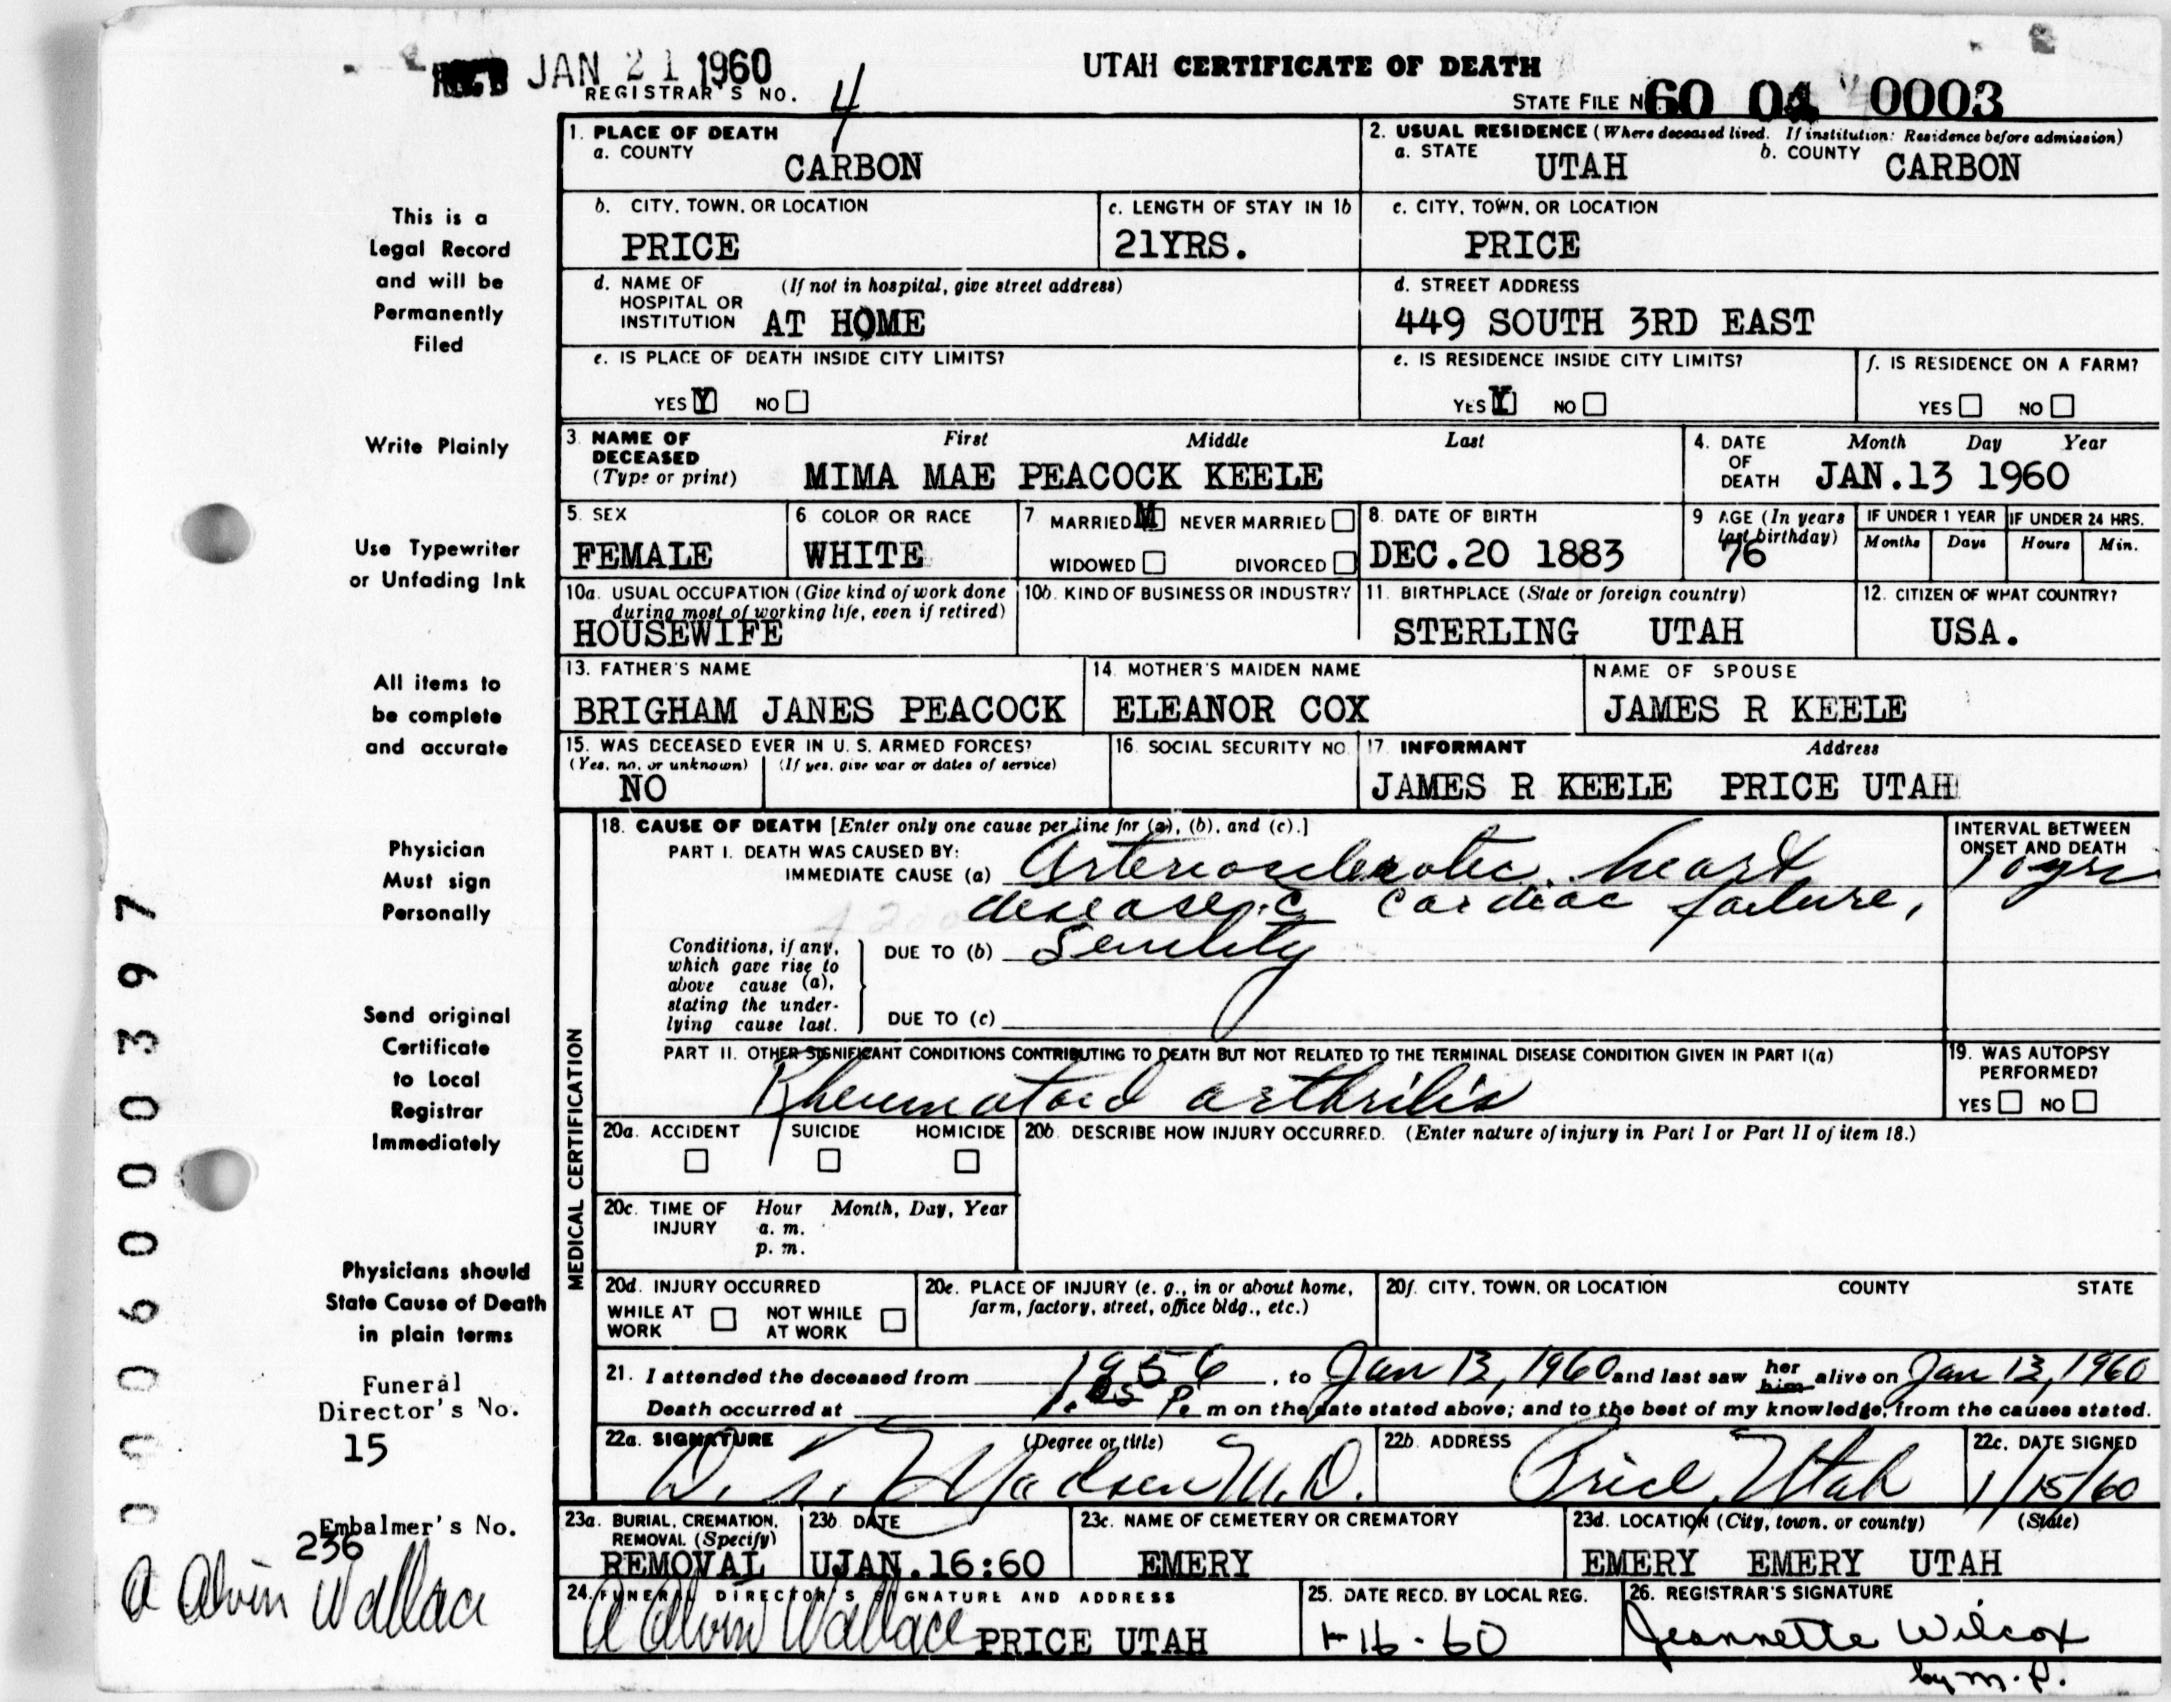 REC'D JAN 21 1960
UTAH CERTIFICATE OF DEATH
REGISTRAR'S NO. 4
STATE FILE NO. 60 04 0003
1. PLACE OF DEATH
a. COUNTY
CARBON
2. USUAL RESIDENCE (Where deceased lived. If institution: Residence before admission)
a. STATE UTAH b. COUNTY CARBON
b. CITY, TOWN, OR LOCATION
PRICE
c. LENGTH OF STAY IN 1b
21YRS.
c. CITY, TOWN, OR LOCATION
PRICE
d. NAME OF HOSPITAL OR INSTITUTION (If not in hospital, give street address)
AT HOME
d. STREET ADDRESS
449 SOUTH 3RD EAST
e. IS PLACE OF DEATH INSIDE CITY LIMITS?
YES Y NO
e. IS RESIDENCE INSIDE CITY LIMITS?
YES Y NO
f. IS RESIDENCE ON A FARM?
YES NO
3. NAME OF DECEASED (Type or print) First Middle Last
MIMA MAE PEACOCK KEELE
4. DATE OF DEATH Month Day Year
JAN.13 1960
5. SEX
FEMALE
6. COLOR OR RACE
WHITE
7 MARRIED M NEVER MARRIED
WIDOWED DIVORCED
8. DATE OF BIRTH
DEC.20 1883
9 AGE (In years last birthday)
76
IF UNDER 1 YEAR
Months Days
IF UNDER 24 HRS.
Hours Min.
10a. USUAL OCCUPATION (Give kind of work done during most of working life, even if retired)
HOUSEWIFE
10b. KIND OF BUSINESS OR INDUSTRY
11. BIRTHPLACE (State or foreign country)
STERLING UTAH
12. CITIZEN OF WHAT COUNTRY?
USA.
13. FATHER'S NAME
BRIGHAM JANES PEACOCK
14. MOTHER'S MAIDEN NAME
ELEANOR COX
NAME OF SPOUSE
JAMES R KEELE
15. WAS DECEASED EVER IN U. S. ARMED FORCES?
(Yes, no, or unknown) (If yes, give war or dates of service)
NO
16. SOCIAL SECURITY NO.
17. INFORMANT Address
JAMES R KEELE PRICE UTAH
MEDICAL CERTIFICATION
18. CAUSE OF DEATH [Enter only one cause per line for (a), (b), and (c).]
PART I. DEATH WAS CAUSED BY:
IMMEDIATE CAUSE (a) Arteriosclerotic heart
disease c cardiac failure,
INTERVAL BETWEEN ONSET AND DEATH
10 yrs
Conditions, if any, which gave rise to above cause (a), stating the underlying cause last.
DUE TO (b) Senility
DUE TO (c)
PART II. OTHER SIGNIFICANT CONDITIONS CONTRIBUTING TO DEATH BUT NOT RELATED TO THE TERMINAL DISEASE CONDITION GIVEN IN PART I(a)
Rheumatoid arthritis
19. WAS AUTOPSY PERFORMED?
YES NO
20a. ACCIDENT SUICIDE HOMICIDE
20b. DESCRIBE HOW INJURY OCCURRED. (Enter nature of injury in Part I or Part II of item 18.)
20c. TIME OF INJURY Hour Month, Day, Year
a. m.
p. m.
20d. INJURY OCCURRED
WHILE AT WORK NOT WHILE AT WORK
20e. PLACE OF INJURY (e. g., in or about home, farm, factory, street, office bldg., etc.)
20f. CITY, TOWN, OR LOCATION COUNTY STATE
21. I attended the deceased from 1956, to Jan 13, 1960 and last saw her him alive on Jan 13, 1960
Death occurred at 1:05 P. m on the date stated above; and to the best of my knowledge, from the causes stated.
22a. SIGNATURE (Degree or title)
Madsen M.D.
22b. ADDRESS
Price, Utah
22c. DATE SIGNED
1/15/60
23a. BURIAL, CREMATION, REMOVAL (Specify)
REMOVAL
23b. DATE
UJAN.16:60
23c. NAME OF CEMETERY OR CREMATORY
EMERY
23d. LOCATION (City, town, or county) (State)
EMERY EMERY UTAH
24. FUNERAL DIRECTOR'S SIGNATURE AND ADDRESS
A Alvin Wallace PRICE UTAH
25. DATE RECD. BY LOCAL REG.
1-16-60
26. REGISTRAR'S SIGNATURE
Jeannette Wilcox
by M. P.
This is a
Legal Record
and will be
Permanently
Filed
Write Plainly
Use Typewriter
or Unfading Ink
All items to
be complete
and accurate
Physician
Must sign
Personally
Send original
Certificate
to Local
Registrar
Immediately
Physicians should
State Cause of Death
in plain terms
Funeral
Director's No.
15
Embalmer's No.
236
A Alvin Wallace
009600397